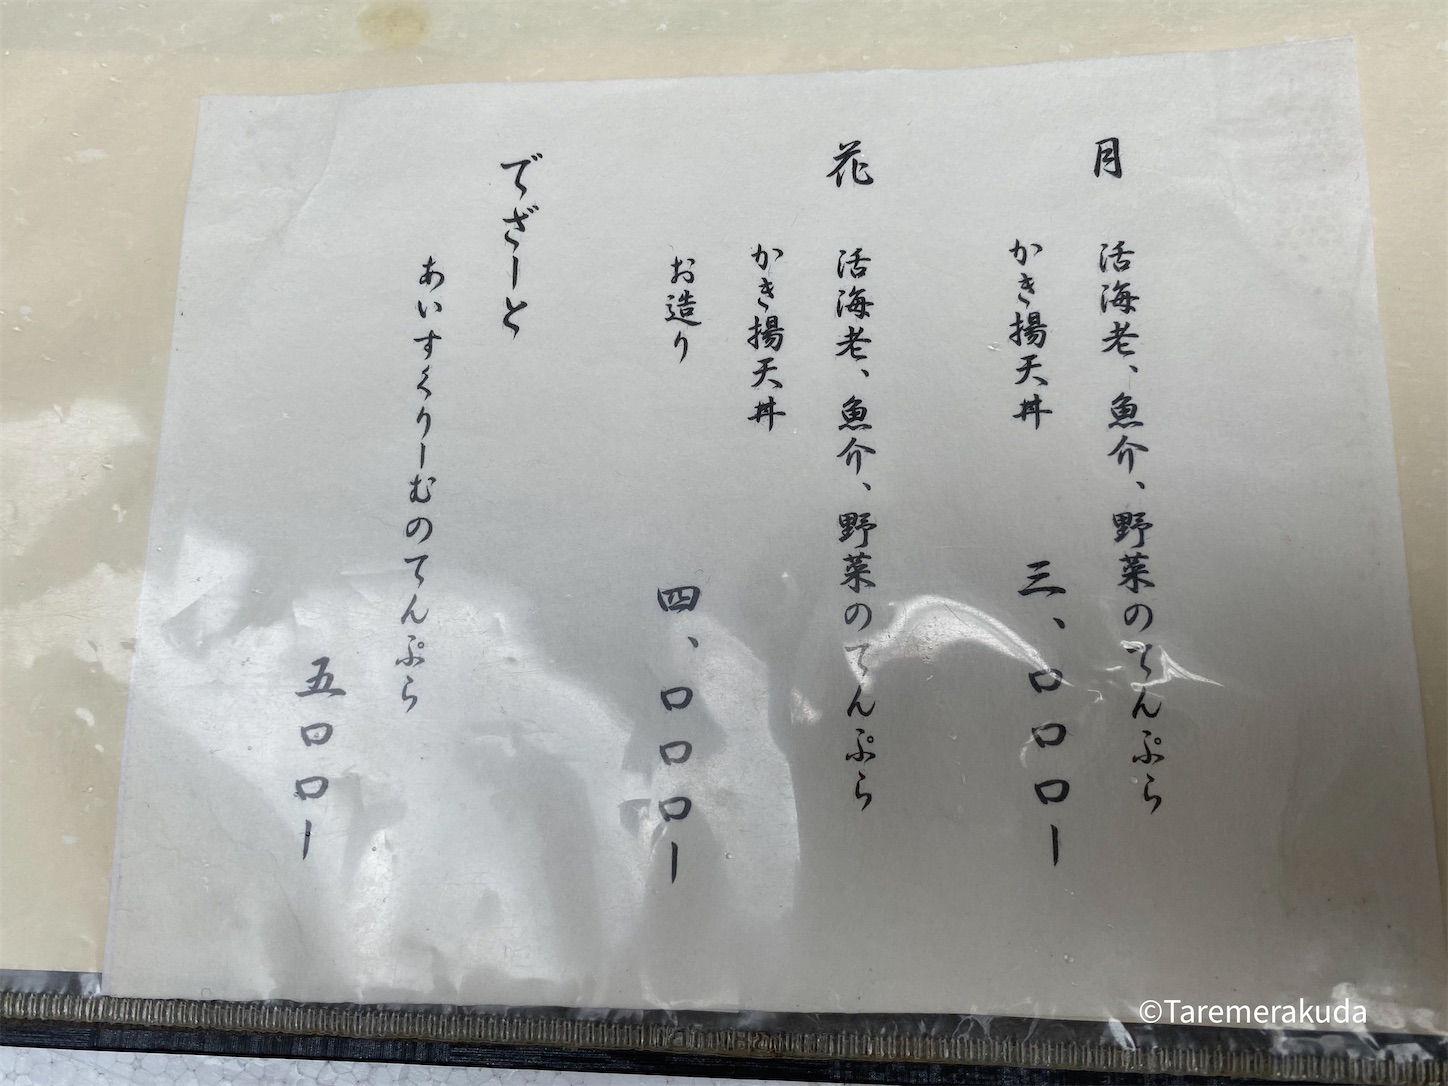 月
活海老、魚介、野菜のてんぷら
かき揚天丼
三、〇〇〇ー
花
活海老、魚介、野菜のてんぷら
かき揚天丼
お造り
四、〇〇〇ー
でざーと
あいすくりーむのてんぷら
五〇〇ー
©Taremerakuda